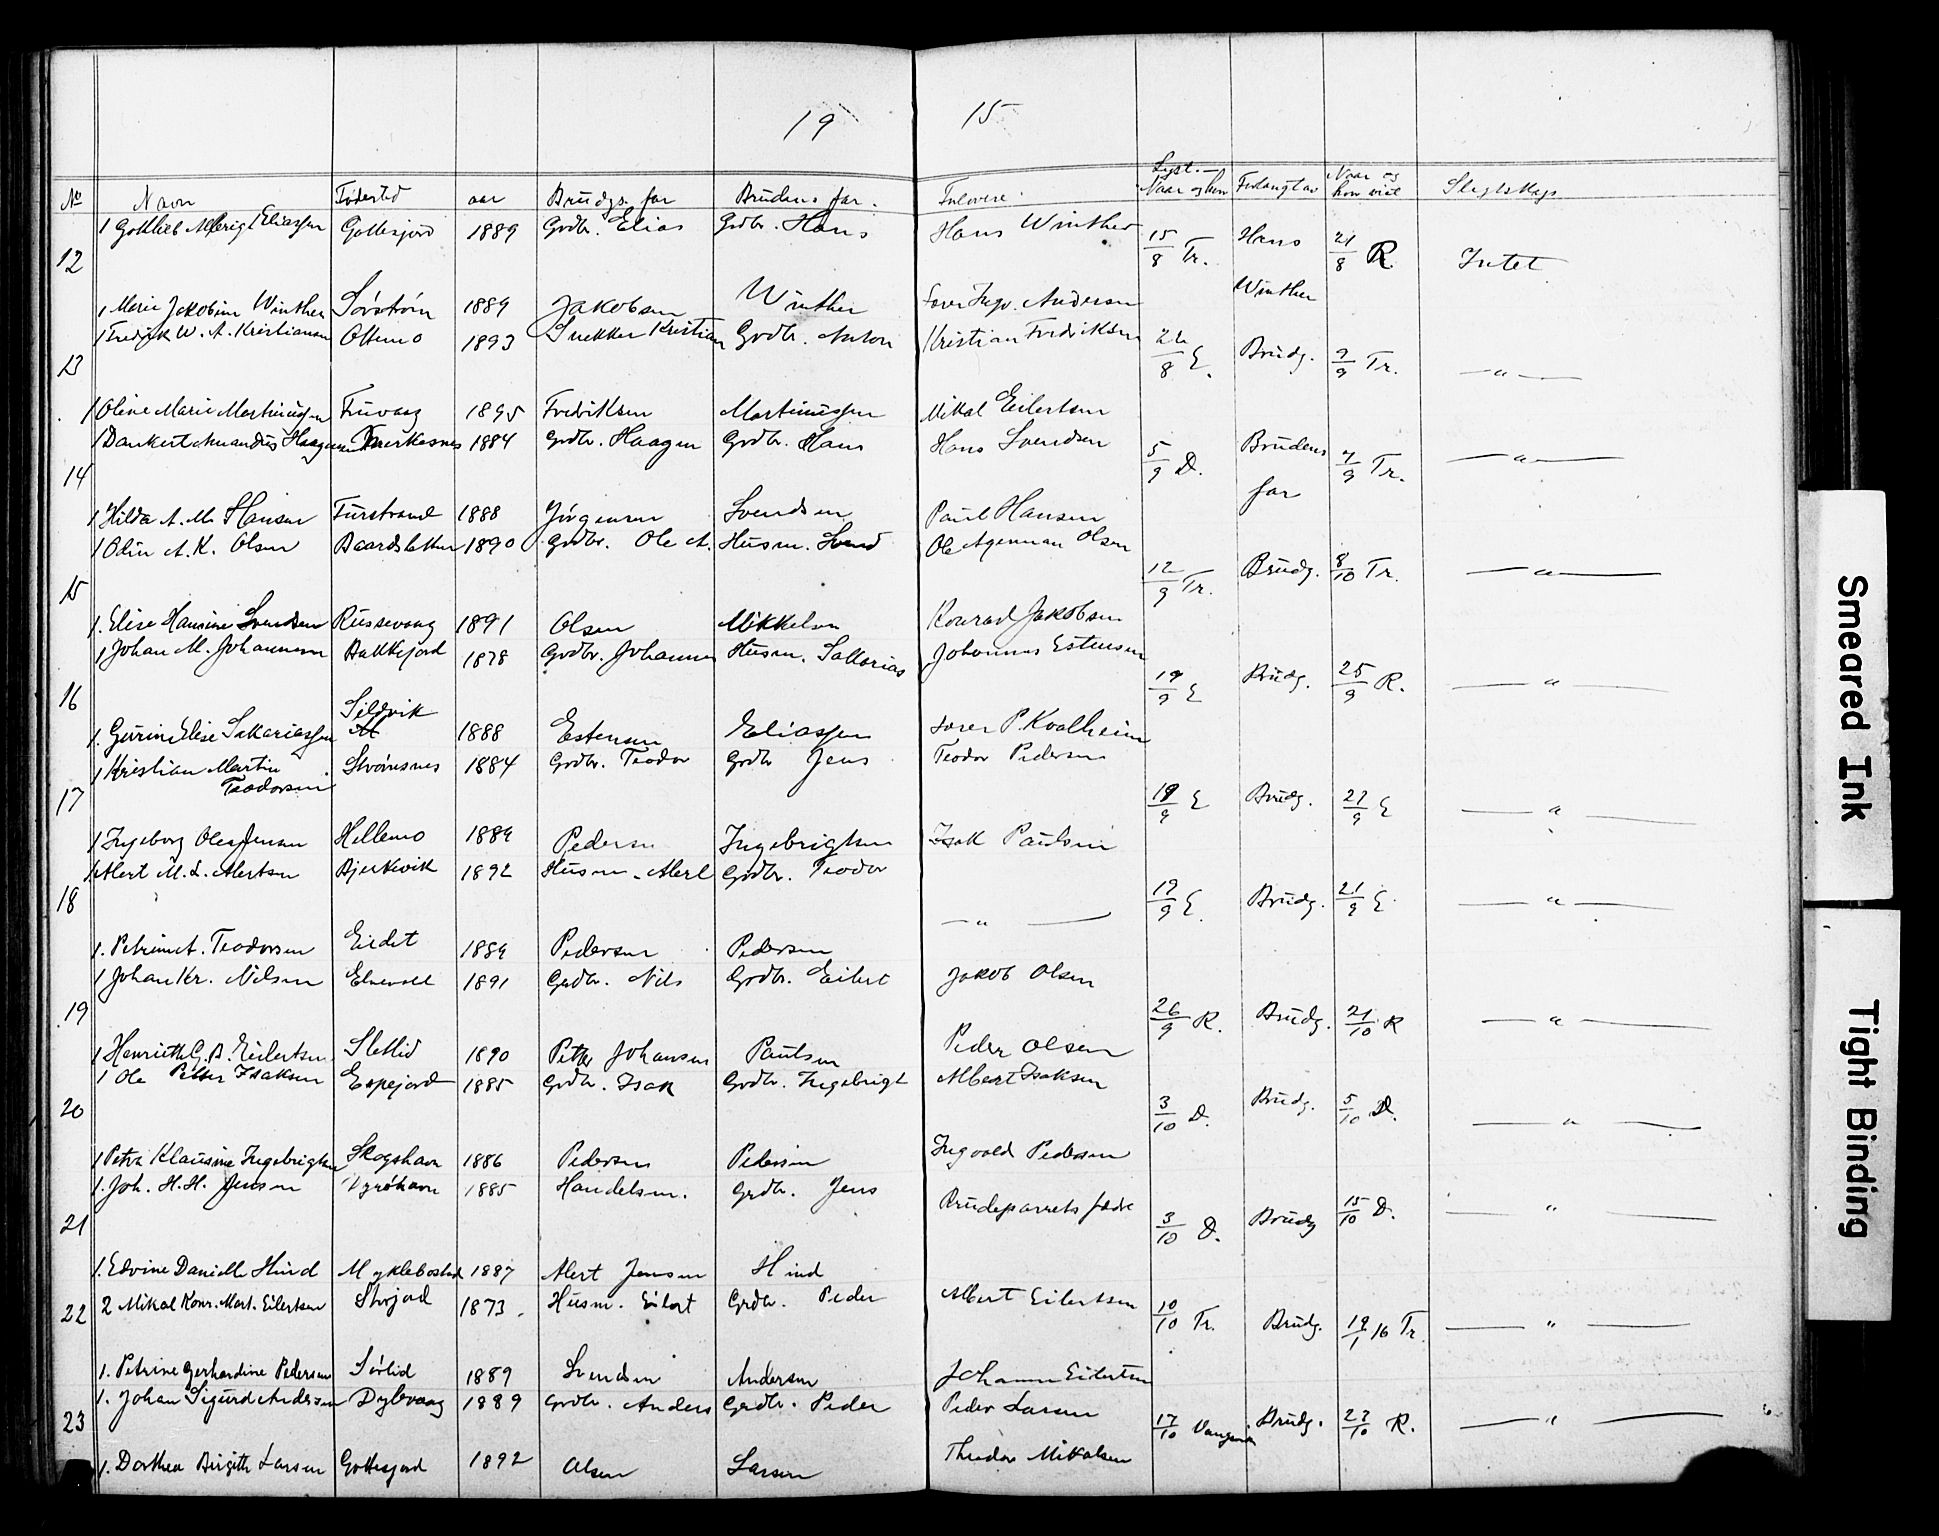 19 15
No Navn Fødested aar Brudgs. far Brudens far. Forlovere Lyst. Naar og hvor Forlangt av Naar og hvor viet Slegtskap
12
1 Gottlieb Eliassen Gottesjord 1889 Grdbr. Elias Grdbr. Hans Hans Winther 15/8 Tr. Hans 21/8 R. Intet
1 Marie Jakobine Winther Sørstrøm 1889 Jakobsen Winther Andersen Winther
13
1 Fredrik W. A. Kristiansen 1893 Snekker Kristian Grdbr. Anton Kristian Fredriksen 8 E. Brudg. 9 Tr. — " —
1 Oline Marie Martinussen 1895 Fredriksen Martinussen Mikal Eilertsen
14
1 Dankert Haagensen 1884 Grdbr. Haagen Grdbr. Hans Hans Svendsen 5/9 D. Brudens 9 Tr. — " —
1 Hilda A. M. Hansen Furstrand 1888 Jørgensen Svendsen Paul Hansen far
15
1 Olin A. K. Olsen Baardsletten 1890 Grdbr. Ole A. Husm. Svend Ole Olsen 12/9 Tr. Brudg. 8/10 Tr. — " —
1. Elise Hansine Svendsen Russevaag 1891 Olsen Mikkelsen Konrad Jakobsen
16
1 Johan M. Johannesen Bakkejord 1878 Grdbr. Johannes Husm. Sakarias Johannes Estensen 19/9 E Brudg. 25/9 R. — " —
1. Gurine Elise Sakariassen Sildvik 1888 Estensen Eliassen P. Kvalheim
17
1 Kristian Martin Teodorsen 1884 Grdbr. Teodor Grdbr Jens Teodor Pedersen 19/9 E Brudg. 9 E — " —
1 Ingeborg Olea Jensen Hellemo 1889 Pedersen Ingebrigtsen Isak Paulsen
18
1 Alert M. L. Alertsen Bjerkvik 1892 Husm. Alert Grdbr. Teodor — " — 19/9 E. Brudg. 21/9 E. — " —
1. Petrine A. Teodorsen Eidet 1889 Pedersen Pedersen
19
1 Johan Kr. Nilsen Elvevold 1891 Grdbr. Nils Grdbr. Eilert Jakob Olsen 26/9 R. Brudg. 21/10 R — " —
1 Henriette G. B. Eilertsen Slettlid 1890 Petter Johansen Paulsen Peder Olsen
20
1 Ole Petter Isaksen Espejord 1885 Grdbr. Isak Grdbr. Ingebrigt Albert Isaksen 3/10 D. Brudg. 5/10 D. — " —
1 Petra Klausine Ingebrigtsen Skogshavn 1886 Pedersen Pedersen Ingvald Pedersen
21
1. Joh. H. H. Jensen Dyrøhavn 1885 Handelsm. Grdbr. Jens Brudeparrets fædre 3/10 D. Brudg 15/10 D. — " —
1. Edvine Danielle Hind Myklebostad 1887 Alert Jensen Hind
22
2 Mikal Konr. Mart. Eilertsen 1873. Husm. Eilert Grdbr. Peder Albert Eilertsen 10/10 Tr. Brudg. 19/1 16 Tr. — " —
1. Petrine Gerhardine Pedersen Sørlid 1889 Svendsen Andersen Johann Eilertsen
23
1. Johan Sigurd Andersen Dybvaag 1889 Grdbr. Anders Grdbr. Peder Peder Larsen 17/10 Brudg. 27/10 R. — " —
1. Dorthea Birgitte Larsen Gottesjord 1892 Olsen Larsen Theodor Mikalsen
Smeared Ink
Tight Binding